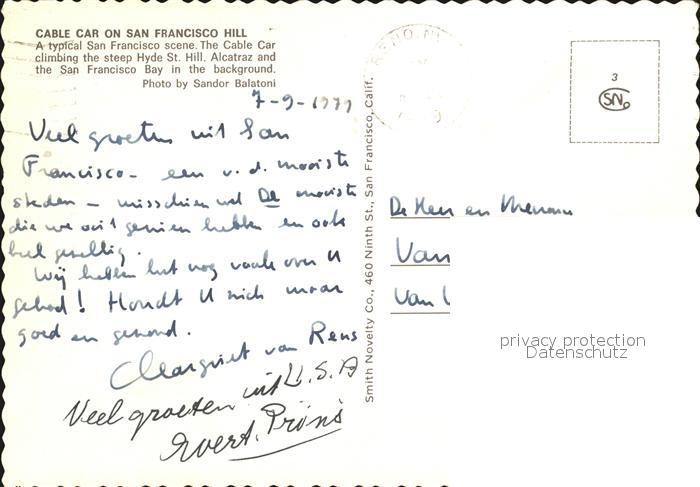 CABLE CAR ON SAN FRANCISCO HILL
A typical San Francisco scene. The Cable Car
climbing the steep Hyde St. Hill. Alcatraz and
the San Francisco Bay in the background.
Photo by Sandor Balatoni
7-9-1979
Veel groeten uit San
Francisco - een v.d. mooiste
steden - misschien wel De mooiste
die we ooit gezien hebben en ook
heel gezellig.
Wij hebben het nog vaak over U
gehad! Houdt U zich maar
goed en gezond.
Margriet van Rens
Veel groeten uit U.S.A
Evert. Prins
Smith Novelty Co., 460 Ninth St., San Francisco, Calif.
RENO, NV
3
SN
De Heer en Mevrouw
Van
Van
privacy protection
Datenschutz